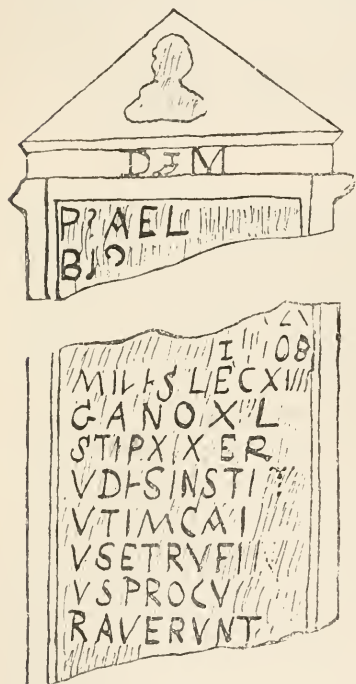 D M
P AEL
B
I OB
MIL LEC XI
G ANO XL
STIP XIX ER
VD SINSTI
VTIMCAI
VSETRVFI
VSPROCV
RAVERVNT